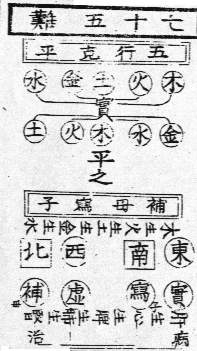 七十五難
五行克平
木火土金水
實
金水木火土
平之
補母寫子
木生火生土生金生水
東南西北
實寫虛補
肝病
生心
生脾
生肺
腎治